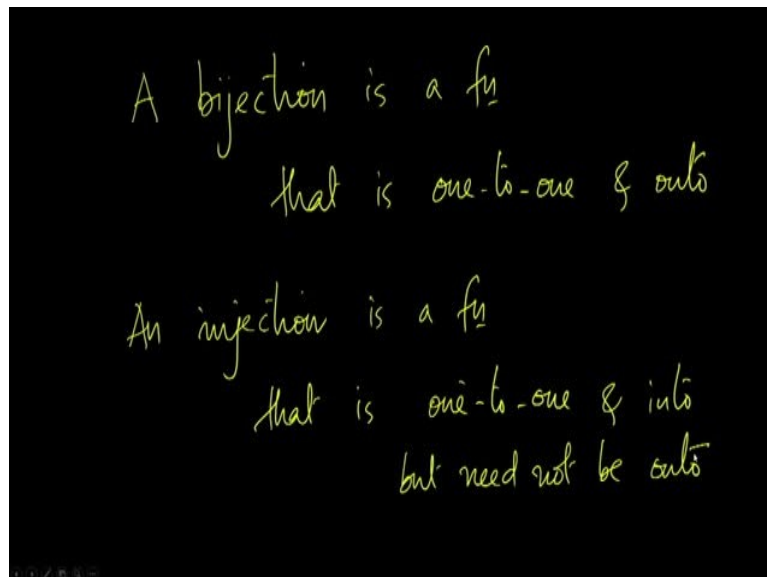 A bijection is a fn
that is one-to-one & onto
An injection is a fn
that is one-to-one & into
but need not be onto